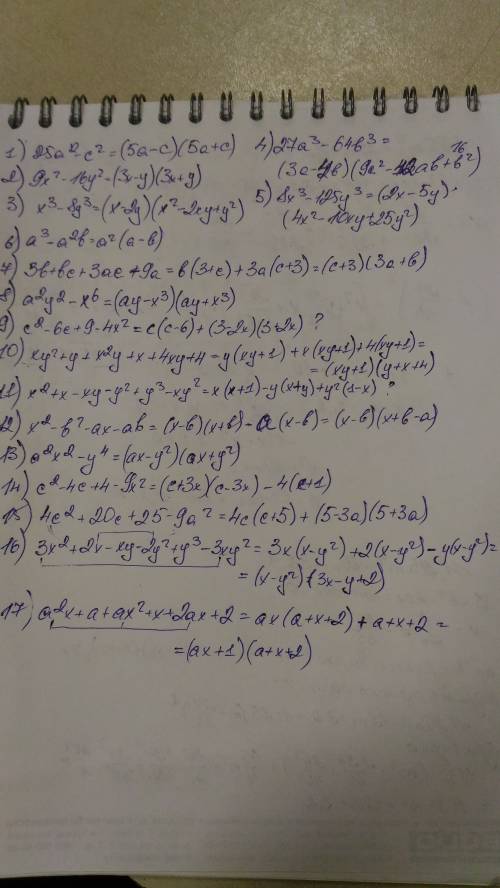 1) 25a²-c²=(5a-c)(5a+c)
2) 9x²-16y²=(3x-y)(3x+y)
3) x³-8y³=(x-2y)(x²-2xy+y²)
4) 27a³-64b³=
(3a-4b)(9a²-12ab+16b²)
5) 8x³-125y³=(2x-5y)·
(4x²-10xy+25y²)
6) a³-a²b=a²(a-b)
7) 3b+bc+3ac+9a=b(3+c)+3a(c+3)=(c+3)(3a+b)
8) a²y²-x⁶=(ay-x³)(ay+x³)
9) c²-6c+9-4x²=c(c-6)+(3-2x)(3+2x) ?
10) xy²+y+x²y+x+4xy+4=y(xy+1)+x(xy+1)+4(xy+1)=
=(xy+1)(y+x+4)
11) x²+x-xy-y²+y³-xy²=x(x+1)-y(x+y)+y²(1-x) ?
12) x²-b²-ax-ab=(x-b)(x+b)-a(x-b)=(x-b)(x+b-a)
13) a²x²-y⁴=(ax-y²)(ax+y²)
14) c²-4c+4-9x²=(c+3x)(c-3x)-4(c+1)
15) 4c²+20c+25-9a²=4c(c+5)+(5-3a)(5+3a)
16) 3x²+2x-xy-2y²+y³-3xy²=3x(x-y²)+2(x-y²)-y(x-y²)=
=(x-y²)(3x-y+2)
17) a²x+a+ax²+x+2ax+2=ax(a+x+2)+a+x+2=
=(ax+1)(a+x+2)